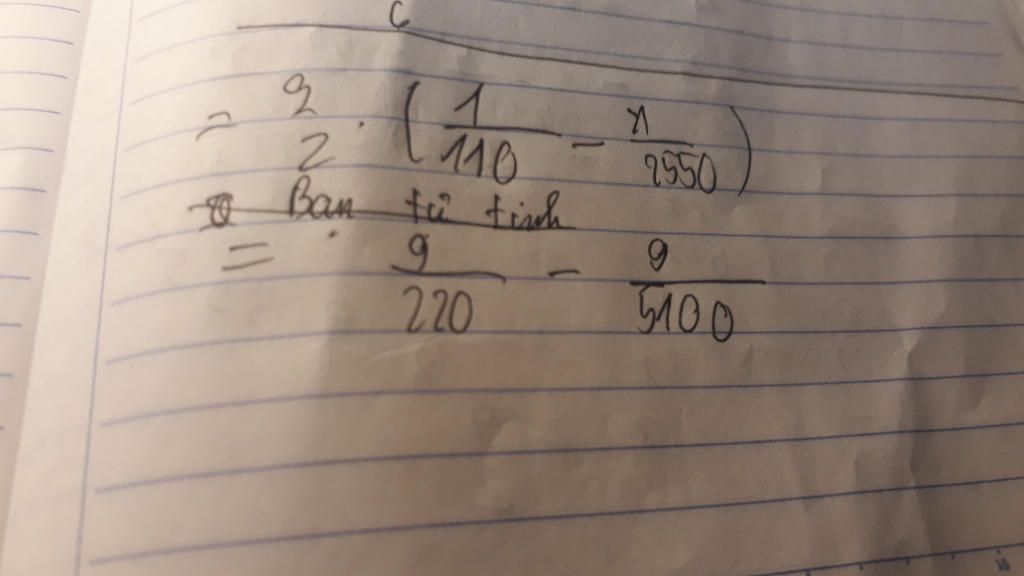 = 9/2 . ( 1/110 - 1/2550 )
Bạn tử tính
= 9/220 - 9/5100